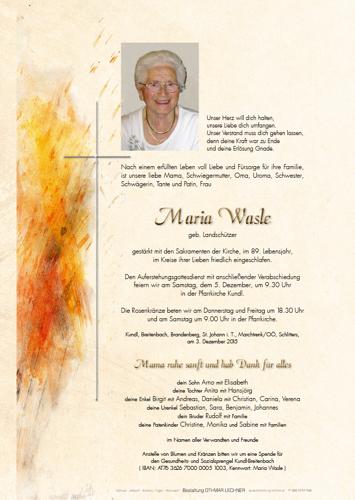 Unser Herz will dich halten,
unsere Liebe dich umfangen.
Unser Verstand muss dich gehen lassen,
denn deine Kraft war zu Ende
und deine Erlösung Gnade.
Nach einem erfüllten Leben voll Liebe und Fürsorge für ihre Familie,
ist unsere liebe Mama, Schwiegermutter, Oma, Uroma, Schwester,
Schwägerin, Tante und Patin, Frau
Maria Wasle
geb. Landschützer
gestärkt mit den Sakramenten der Kirche, im 89. Lebensjahr,
im Kreise ihrer Lieben friedlich eingeschlafen.
Den Auferstehungsgottesdienst mit anschließender Verabschiedung
feiern wir am Samstag, dem 5. Dezember, um 9.30 Uhr
in der Pfarrkirche Kundl.
Die Rosenkränze beten wir am Donnerstag und Freitag um 18.30 Uhr
und am Samstag um 9.00 Uhr in der Pfarrkirche.
Kundl, Breitenbach, Brandenberg, St. Johann i. T., Marchtrenk/OÖ, Schlitters,
am 3. Dezember 2015
Mama ruhe sanft und hab Dank für alles
dein Sohn Arno mit Elisabeth
deine Tochter Anita mit Hansjörg
deine Enkel Birgit mit Andreas, Daniela mit Christian, Carina, Verena
deine Urenkel Sebastian, Sara, Benjamin, Johannes
dein Bruder Rudolf mit Familie
deine Patenkinder Christine, Monika und Sabine mit Familien
im Namen aller Verwandten und Freunde
Anstelle von Blumen und Kränzen bitten wir um eine Spende für
den Gesundheits- und Sozialsprengel Kundl-Breitenbach
( IBAN: AT76 3626 7000 0005 1003, Kennwort: Maria Wasle )
Bestattung OTHMAR LECHNER